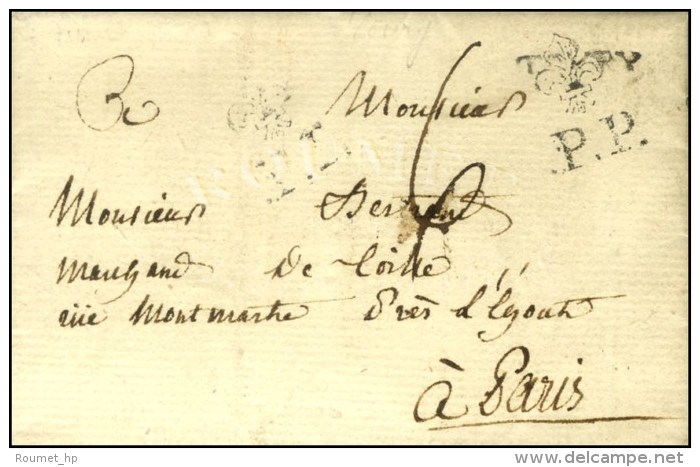 Monsieur
P.P.
Monsieur Bertrand
marchand de toille
rüe Montmartre près d'légout
à Paris
Roumet_hp
delcampe.net